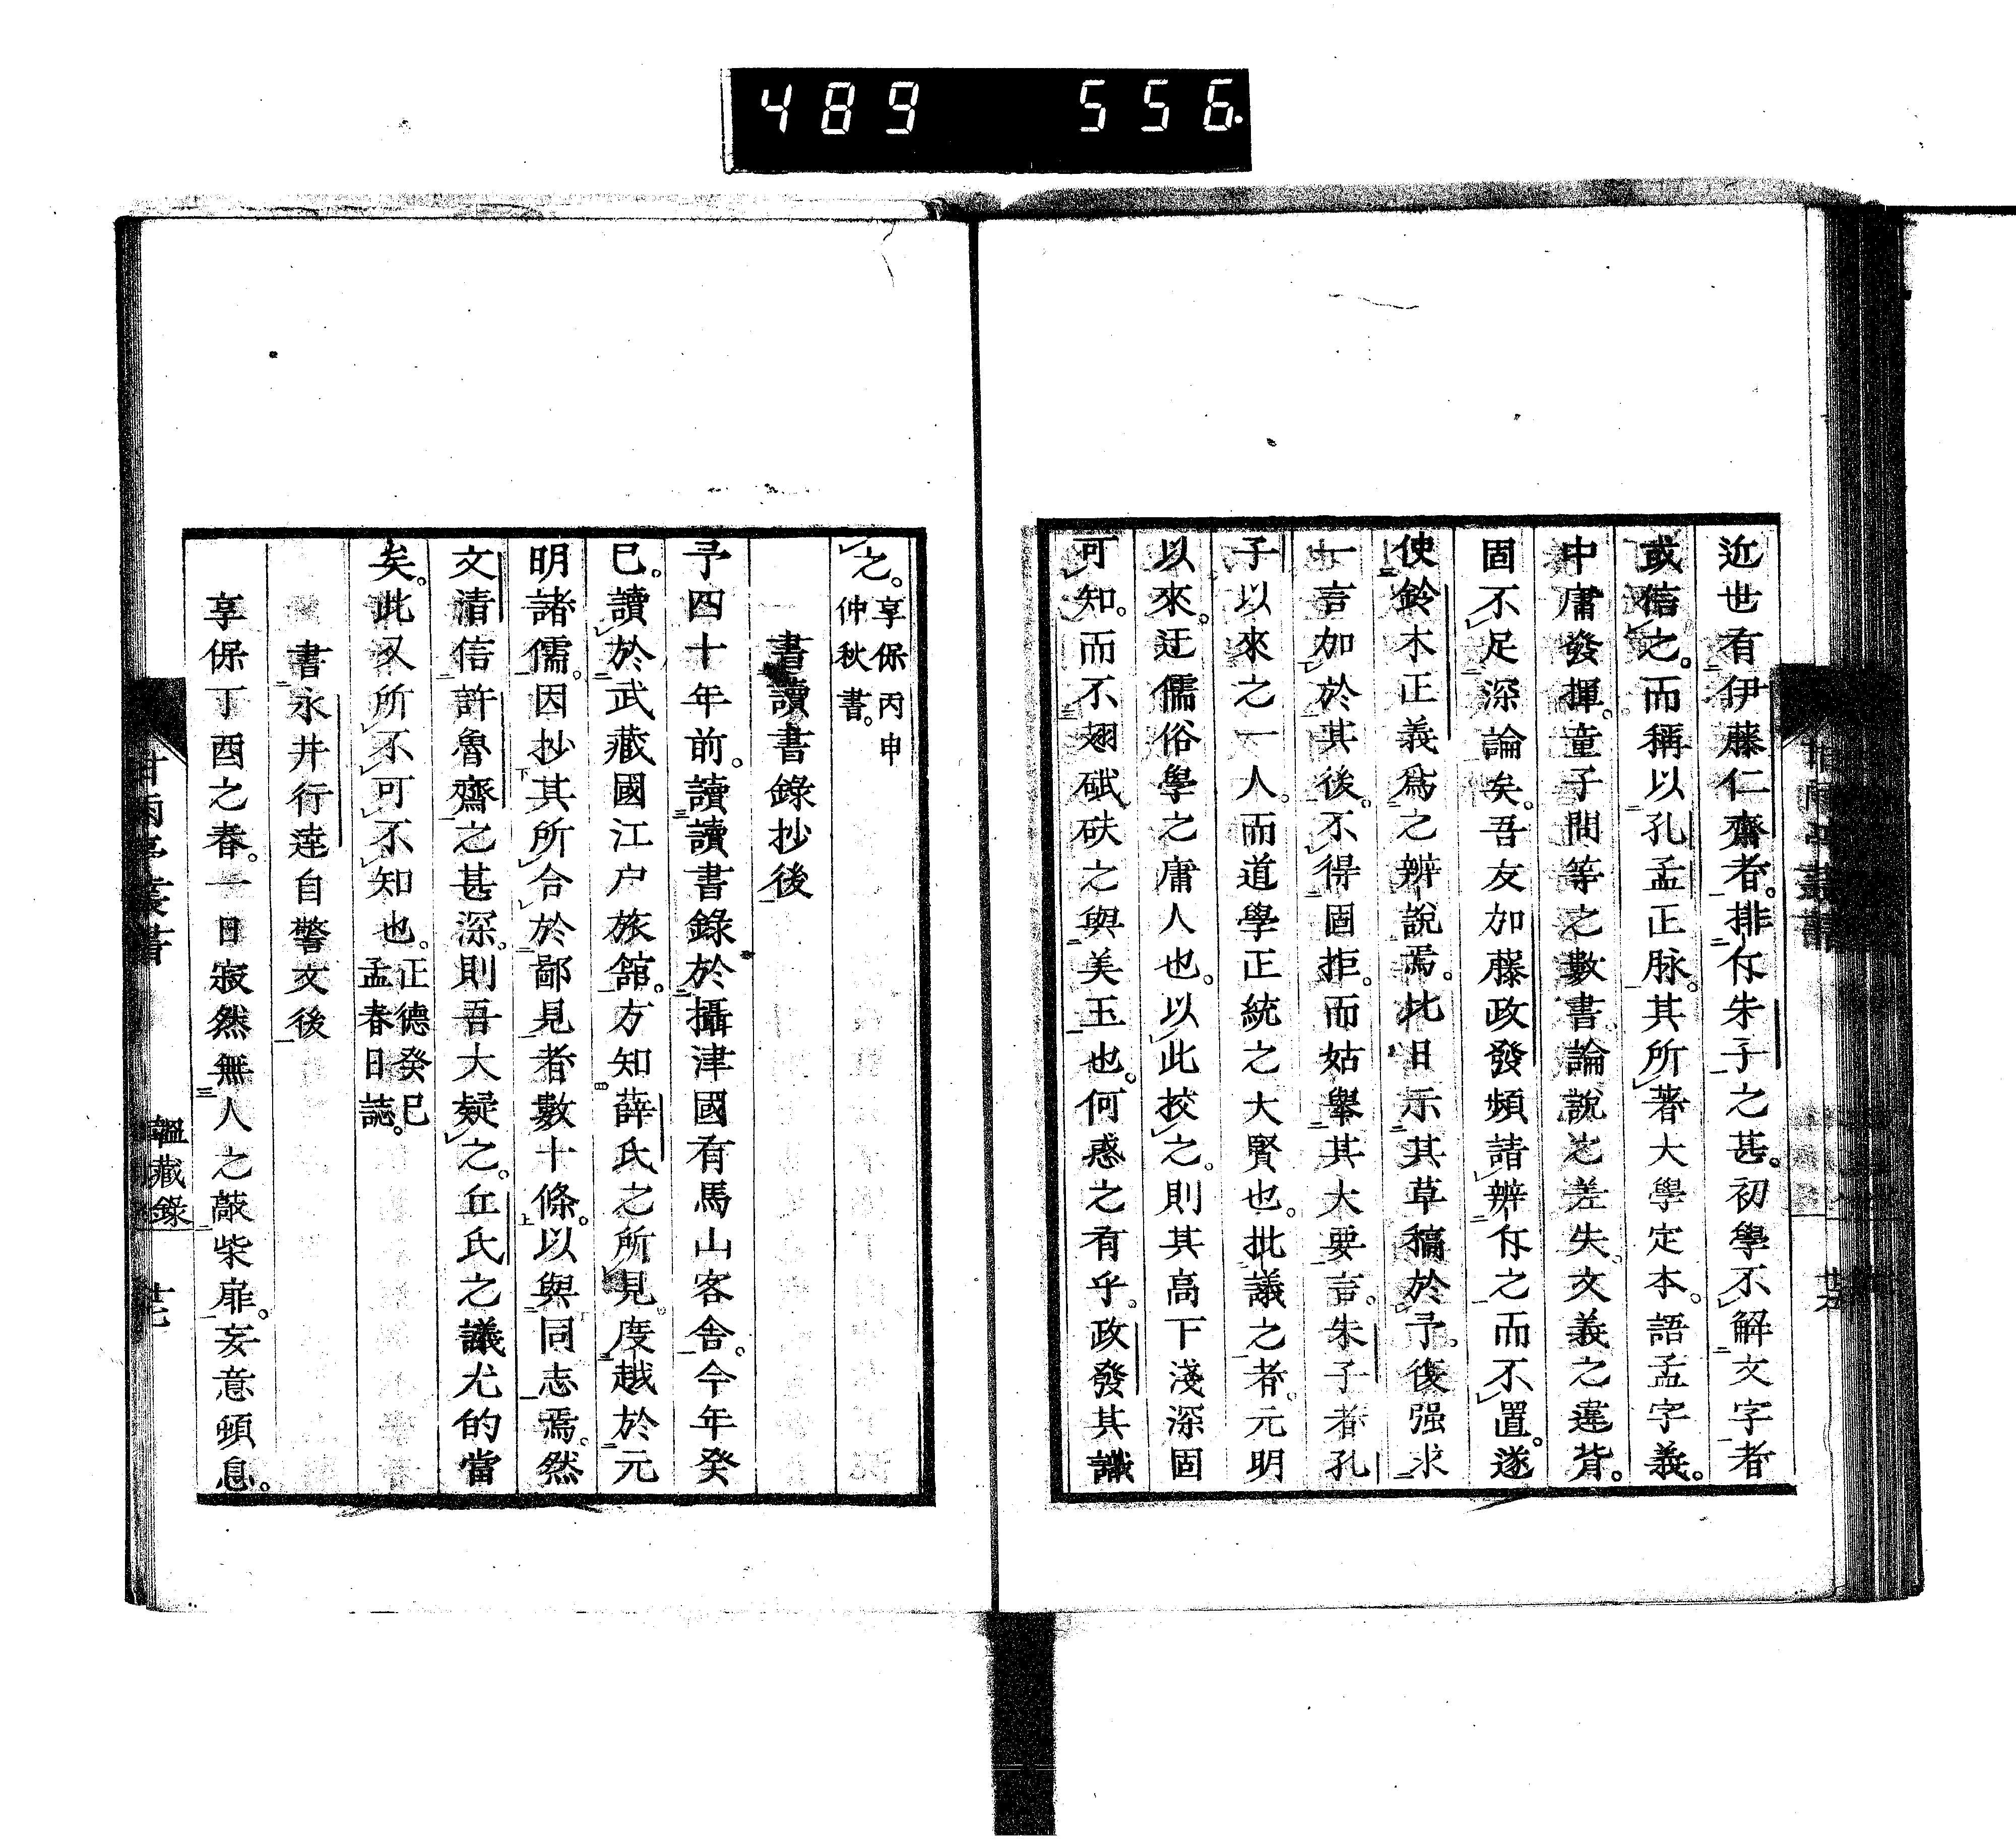 489 556
近世有伊藤仁齋者。排斥朱子之甚。初學不解文字者
或信之。而稱以孔孟正脉。其所著大學定本。語孟字義。
中庸發揮。童子問等之數書。論說之差失。文義之違背。
固不足深論矣。吾友加藤政發頻請辨斥之而不置。遂
使鈴木正義爲之辨說焉。此日示其草稿於予。復强求
一言加於其後。不得固拒。而姑舉其大要言。朱子者孔
子以來之一人。而道學正統之大賢也。批議之者。元明
以來。迂儒俗學之庸人也。以此挍之。則其高下淺深固
可知。而不翅碔砆之與美玉也。何惑之有乎。政發其識
之。享保丙申仲秋書。
書讀書錄抄後
予四十年前。讀讀書錄於攝津國有馬山客舍。今年癸
巳。讀於武藏國江戶旅舘。方知薛氏之所見。度越於元
明諸儒。因抄其所合於鄙見者數十條。以與同志焉。然
文清信許魯齋之甚深。則吾大疑之。丘氏之議尤的當
矣。此又所不可不知也。正德癸巳孟春日誌。
書永井行達自警文後
享保丁酉之春。一日寂然無人之敲柴扉。妄意頓息。
甘雨亭叢書
韞藏錄